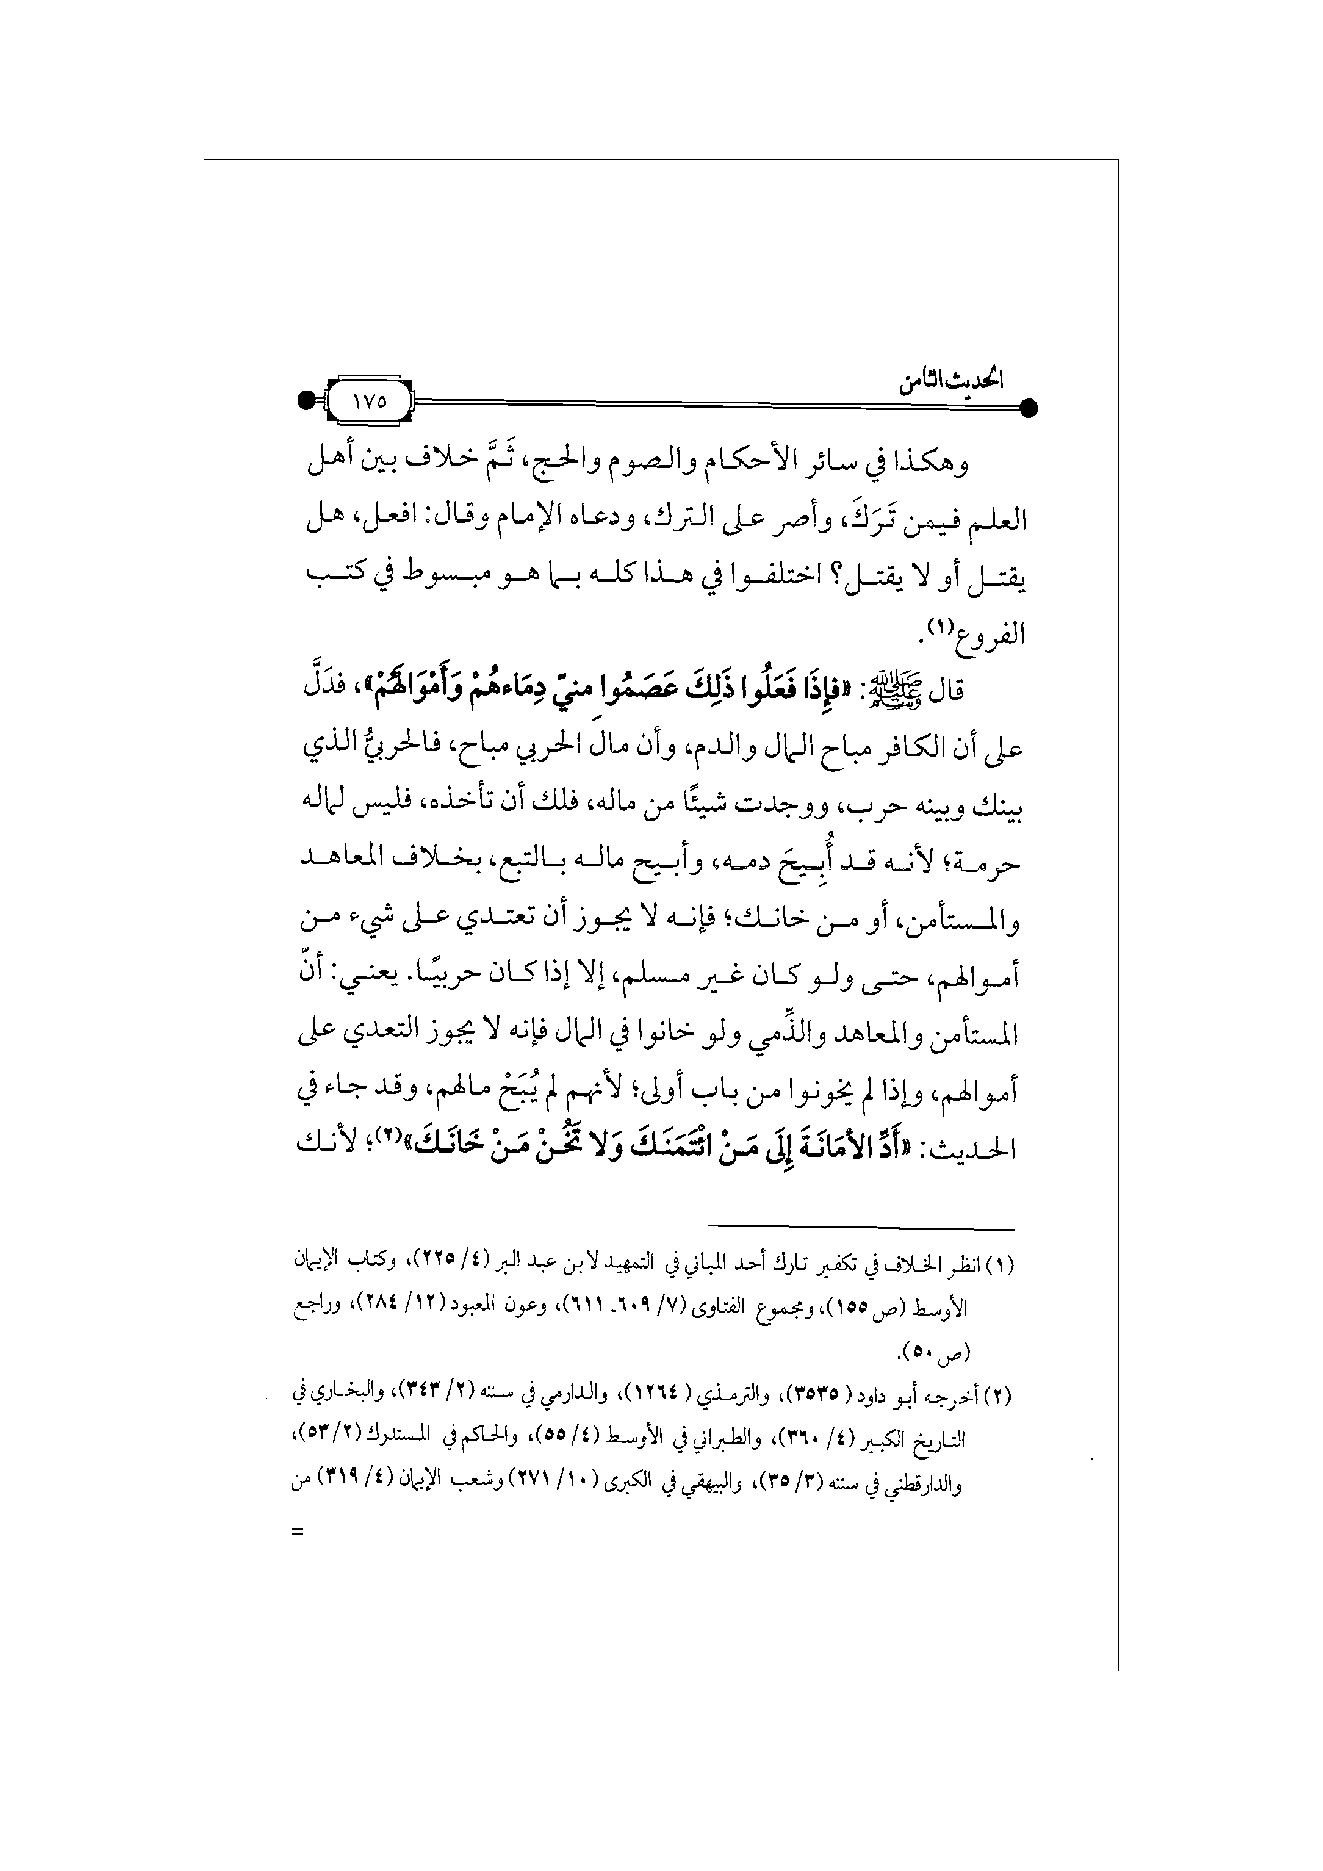 الحديث الثامن
١٧٥
وهكذا في سائر الأحكام والصوم والحج، ثَمَّ خلاف بين أهل
العلم فيمن تَرَكَ، وأصر على الترك، ودعاه الإمام وقال: افعل، هل
يقتل أو لا يقتل؟ اختلفوا في هذا كله بما هو مبسوط في كتب
الفروع(١).
قال ﷺ: «فإِذَا فَعَلُوا ذَلِكَ عَصَمُوا مِنيّ دِمَاءهُمْ وَأَمْوَالَهُمْ»، فدَلَّ
على أن الكافر مباح المال والدم، وأن مال الحربي مباح، فالحربيُّ الذي
بينك وبينه حرب، ووجدت شيئًا من ماله، فلك أن تأخذه، فليس لماله
حرمة؛ لأنه قد أُبِيحَ دمه، وأبيح ماله بالتبع، بخلاف المعاهد
والمستأمن، أو من خانك؛ فإنه لا يجوز أن تعتدي على شيء من
أموالهم، حتى ولو كان غير مسلم، إلا إذا كان حربيًا. يعني: أنّ
المستأمن والمعاهد والذِّمي ولو خانوا في المال فإنه لا يجوز التعدي على
أموالهم، وإذا لم يخونوا من باب أولى؛ لأنهم لم يُبَحْ مالهم، وقد جاء في
الحديث: «أَدِّ الأَمَانَةَ إِلَى مَنْ ائْتَمَنَكَ وَلا تَخُنْ مَنْ خَانَكَ»(٢)؛ لأنك
(١) انظر الخلاف في تكفير تارك أحد المباني في التمهيد لابن عبد البر (٤/ ٢٢٥)، وكتاب الإيمان
الأوسط (ص ١٥٥)، ومجموع الفتاوى (٧/ ٦٠٩ـ ٦١١)، وعون المعبود (١٢/ ٢٨٤)، وراجع
(ص ٥٠).
(٢) أخرجه أبو داود ( ٣٥٣٥)، والترمذي ( ١٢٦٤)، والدارمي في سننه (٢/ ٣٤٣)، والبخاري في
التاريخ الكبير (٤/ ٣٦٠)، والطبراني في الأوسط (٤/ ٥٥)، والحاكم في المستدرك (٢/ ٥٣)،
والدارقطني في سننه (٣/ ٣٥)، والبيهقي في الكبرى (١٠/ ٢٧١) وشعب الإيمان (٤/ ٣١٩) من
=